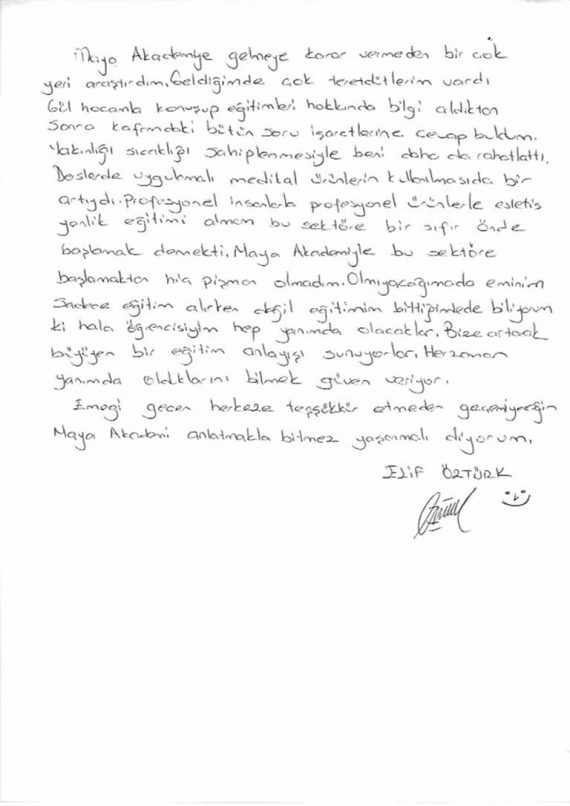 Akademiye gelmeye karar vermeden bir çok
yeri araştırdım. Geldiğimde çok teretdütlerim vardı
Gül hocamla konuşup eğitimleri hakkında bilgi aldıktan
sonra kafamdaki bütün soru işaretlerine cevap buldum.
Yakınlığı sıcaklığı sahiplenmesiyle beni daha da rahatlattı.
Deslerde uygulmalı medikal ürünlerin kullanılmasıda bir
artıydı. Profesyonel insanlarla profesyonel ürünlerle estetis
yenlik eğitimi almam bu sektöre bir sıfır önde
başlamak demekti. Maya Akademiyle bu sektöre
başlamaktan hiç pişman olmadım. Olmıyacağımada eminim
Sadece eğitim alırken değil eğitimim bittiğindede biliyorum
ki hala öğrencisiyim hep yanımda olacaklar. Bize artarak
büyüyen bir eğitim anlayışı sunuyorlar. Herzaman
yanımda olduklarını bilmek güven veriyor.
Emeği geçen herkeze teşşükkür etmeden geçemiyeceğim
Maya Akademi anlatmakla bitmez yaşanmalı diyorum.
ELİF ÖZTÜRK